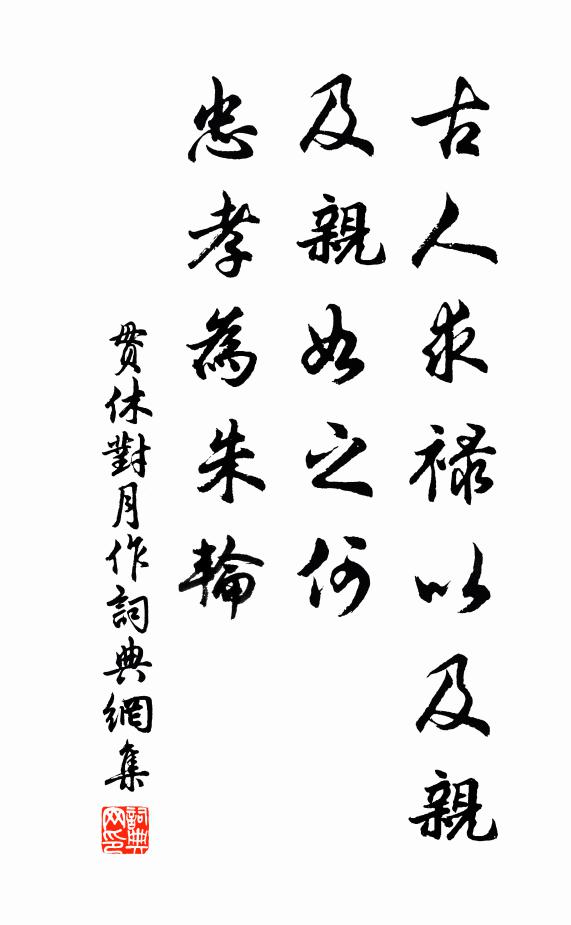 古人求禄以及親
及親如之何
忠孝為朱輪
貫休對月作詞典網集
詞典网印